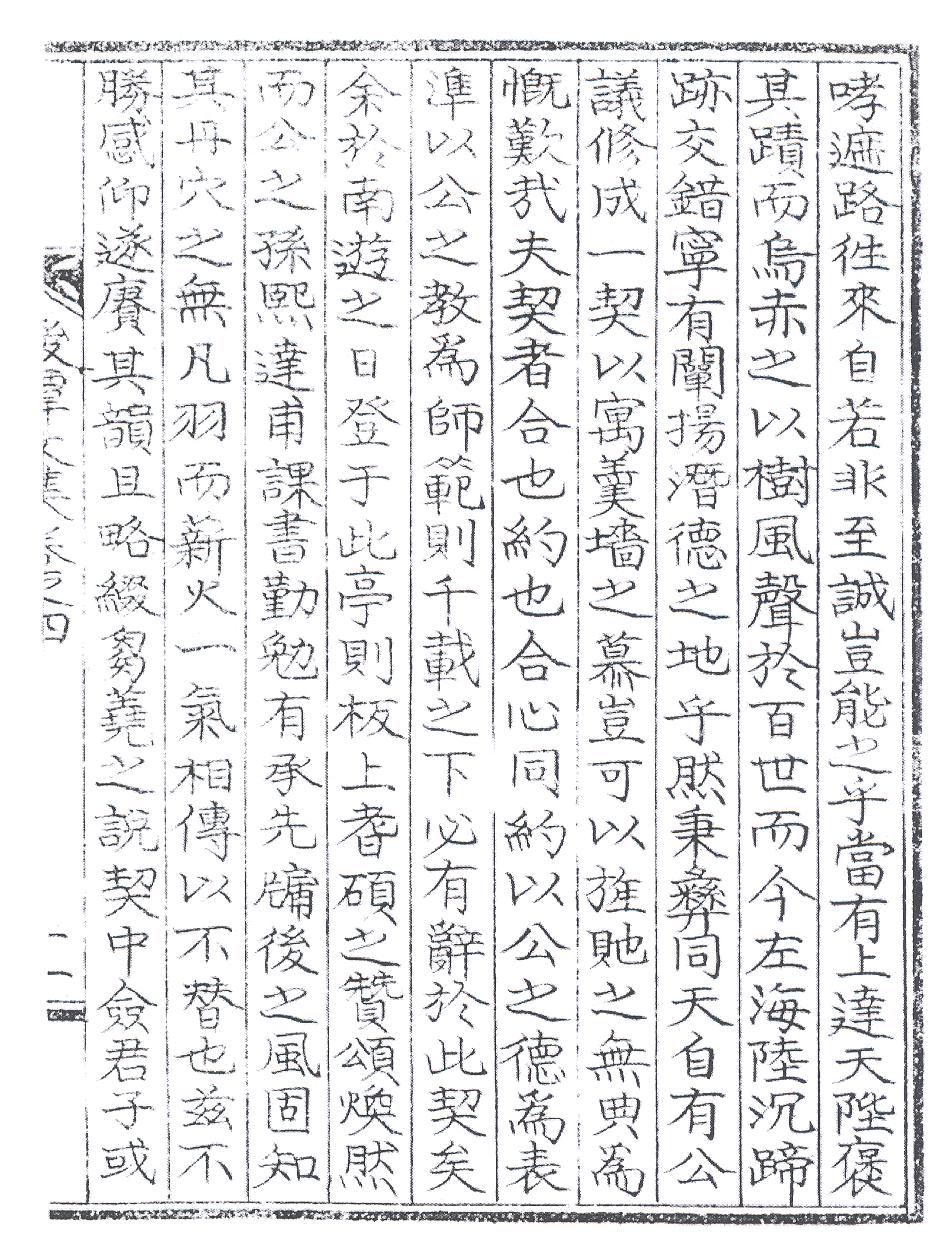 哮遮路徃來自若非至誠豈能之乎當有上達天陛褒
其蹟而烏赤之以樹風聲於百世而今左海陸沉蹄
跡交錯寧有闡揚潛德之地乎然秉彜同天自有公
議修成一契以寓羹墻之慕豈可以旌貤之無典爲
慨歎㢤夫契者合也約也合心同約以公之德爲表
準以公之敎爲師範則千載之下必有辭於此契矣
余於南遊之日登于此亭則板上耆碩之贊頌煥然
而公之孫熙達甫課書勤勉有承先牖後之風固知
其丹穴之無凡羽而薪火一氣相傳以不替也玆不
勝感仰遂賡其韻且略綴芻蕘之說契中僉君子或
文集卷之四